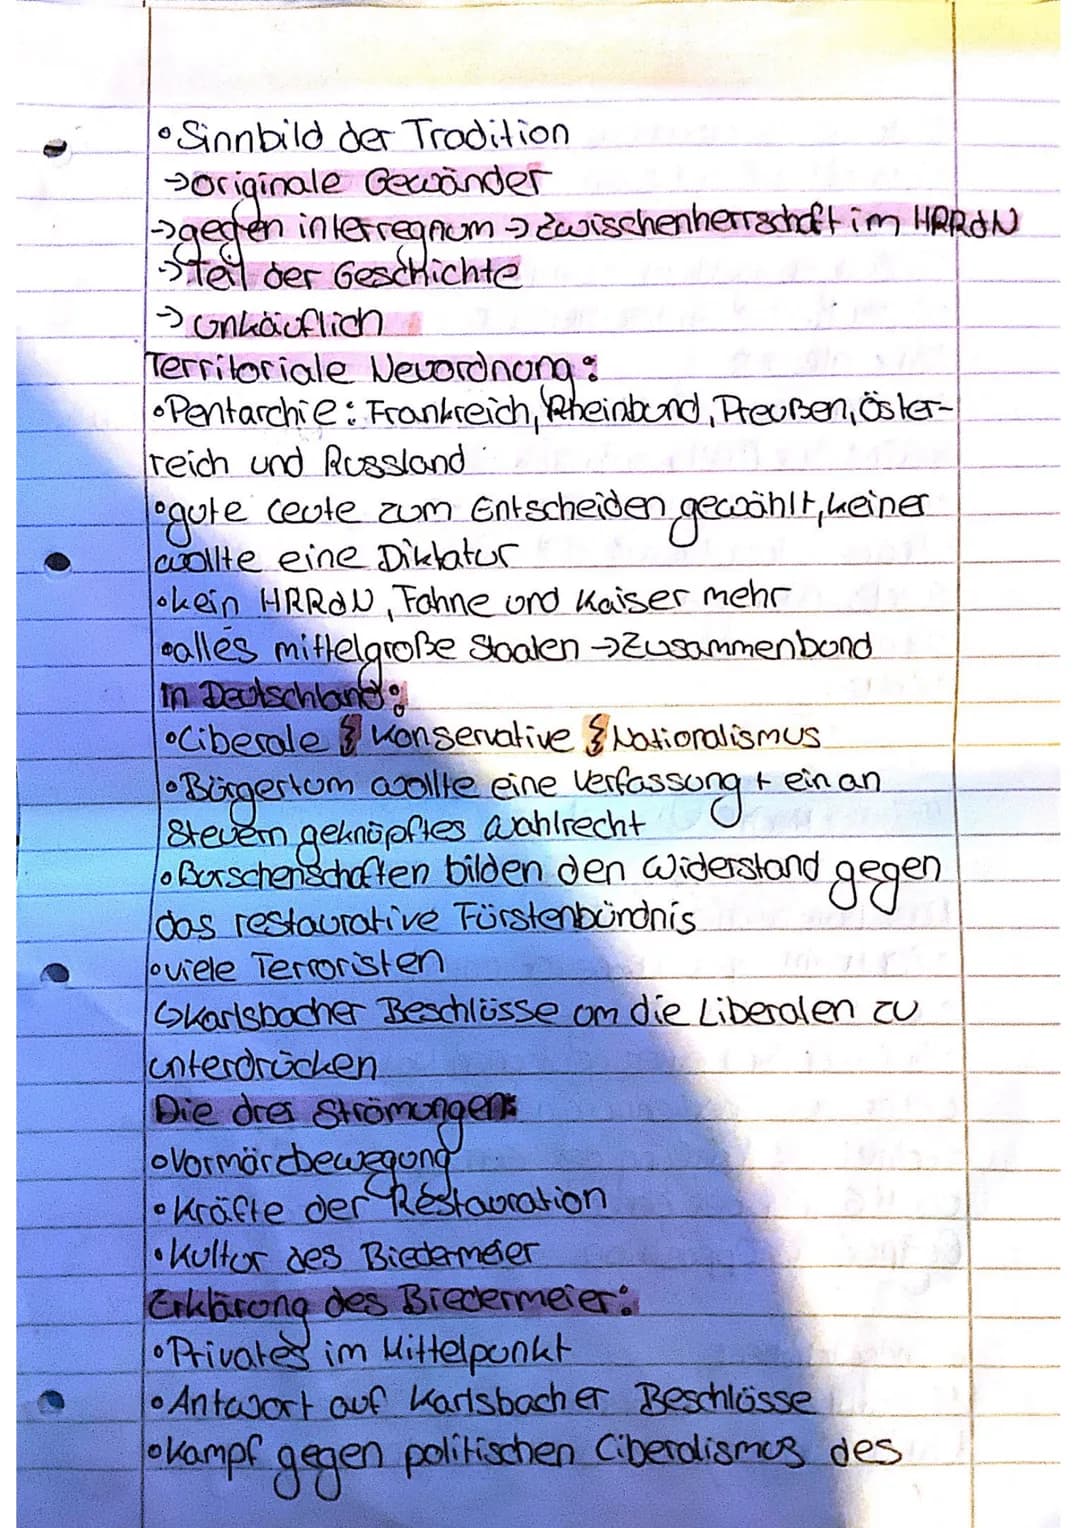 • Sinnbild der Tradition
→originale Gewänder
→gegen interregnum → Zwischenherrschaft im HRRdN
→Teil der Geschichte
→ unkäuflich
Territoriale Neuordnung:
•Pentarchie: Frankreich, Rheinbund, Preußen, Öster-
reich und Russland
•gute Leute zum Entscheiden gewählt, keiner
wollte eine Diktatur
•kein HRRdN, Fahne und Kaiser mehr
•alles mittelgroße Staaten →Zusammenbund
In Deutschland:
•Liberale ↯ Konservative ↯ Nationalismus
•Bürgertum wollte eine Verfassung + ein an
Steuern geknüpftes Wahlrecht
•Burschenschaften bilden den Widerstand gegen
das restaurative Fürstenbündnis
•viele Terroristen
↳Karlsbacher Beschlüsse um die Liberalen zu
unterdrücken
Die drei Strömungen:
•Vormärzbewegung
•Kräfte der Restauration
•Kultur des Biedermeier
Erklärung des Biedermeier:
•Privates im Mittelpunkt
•Antwort auf Karlsbacher Beschlüsse
•Kampf gegen politischen Liberalismus des